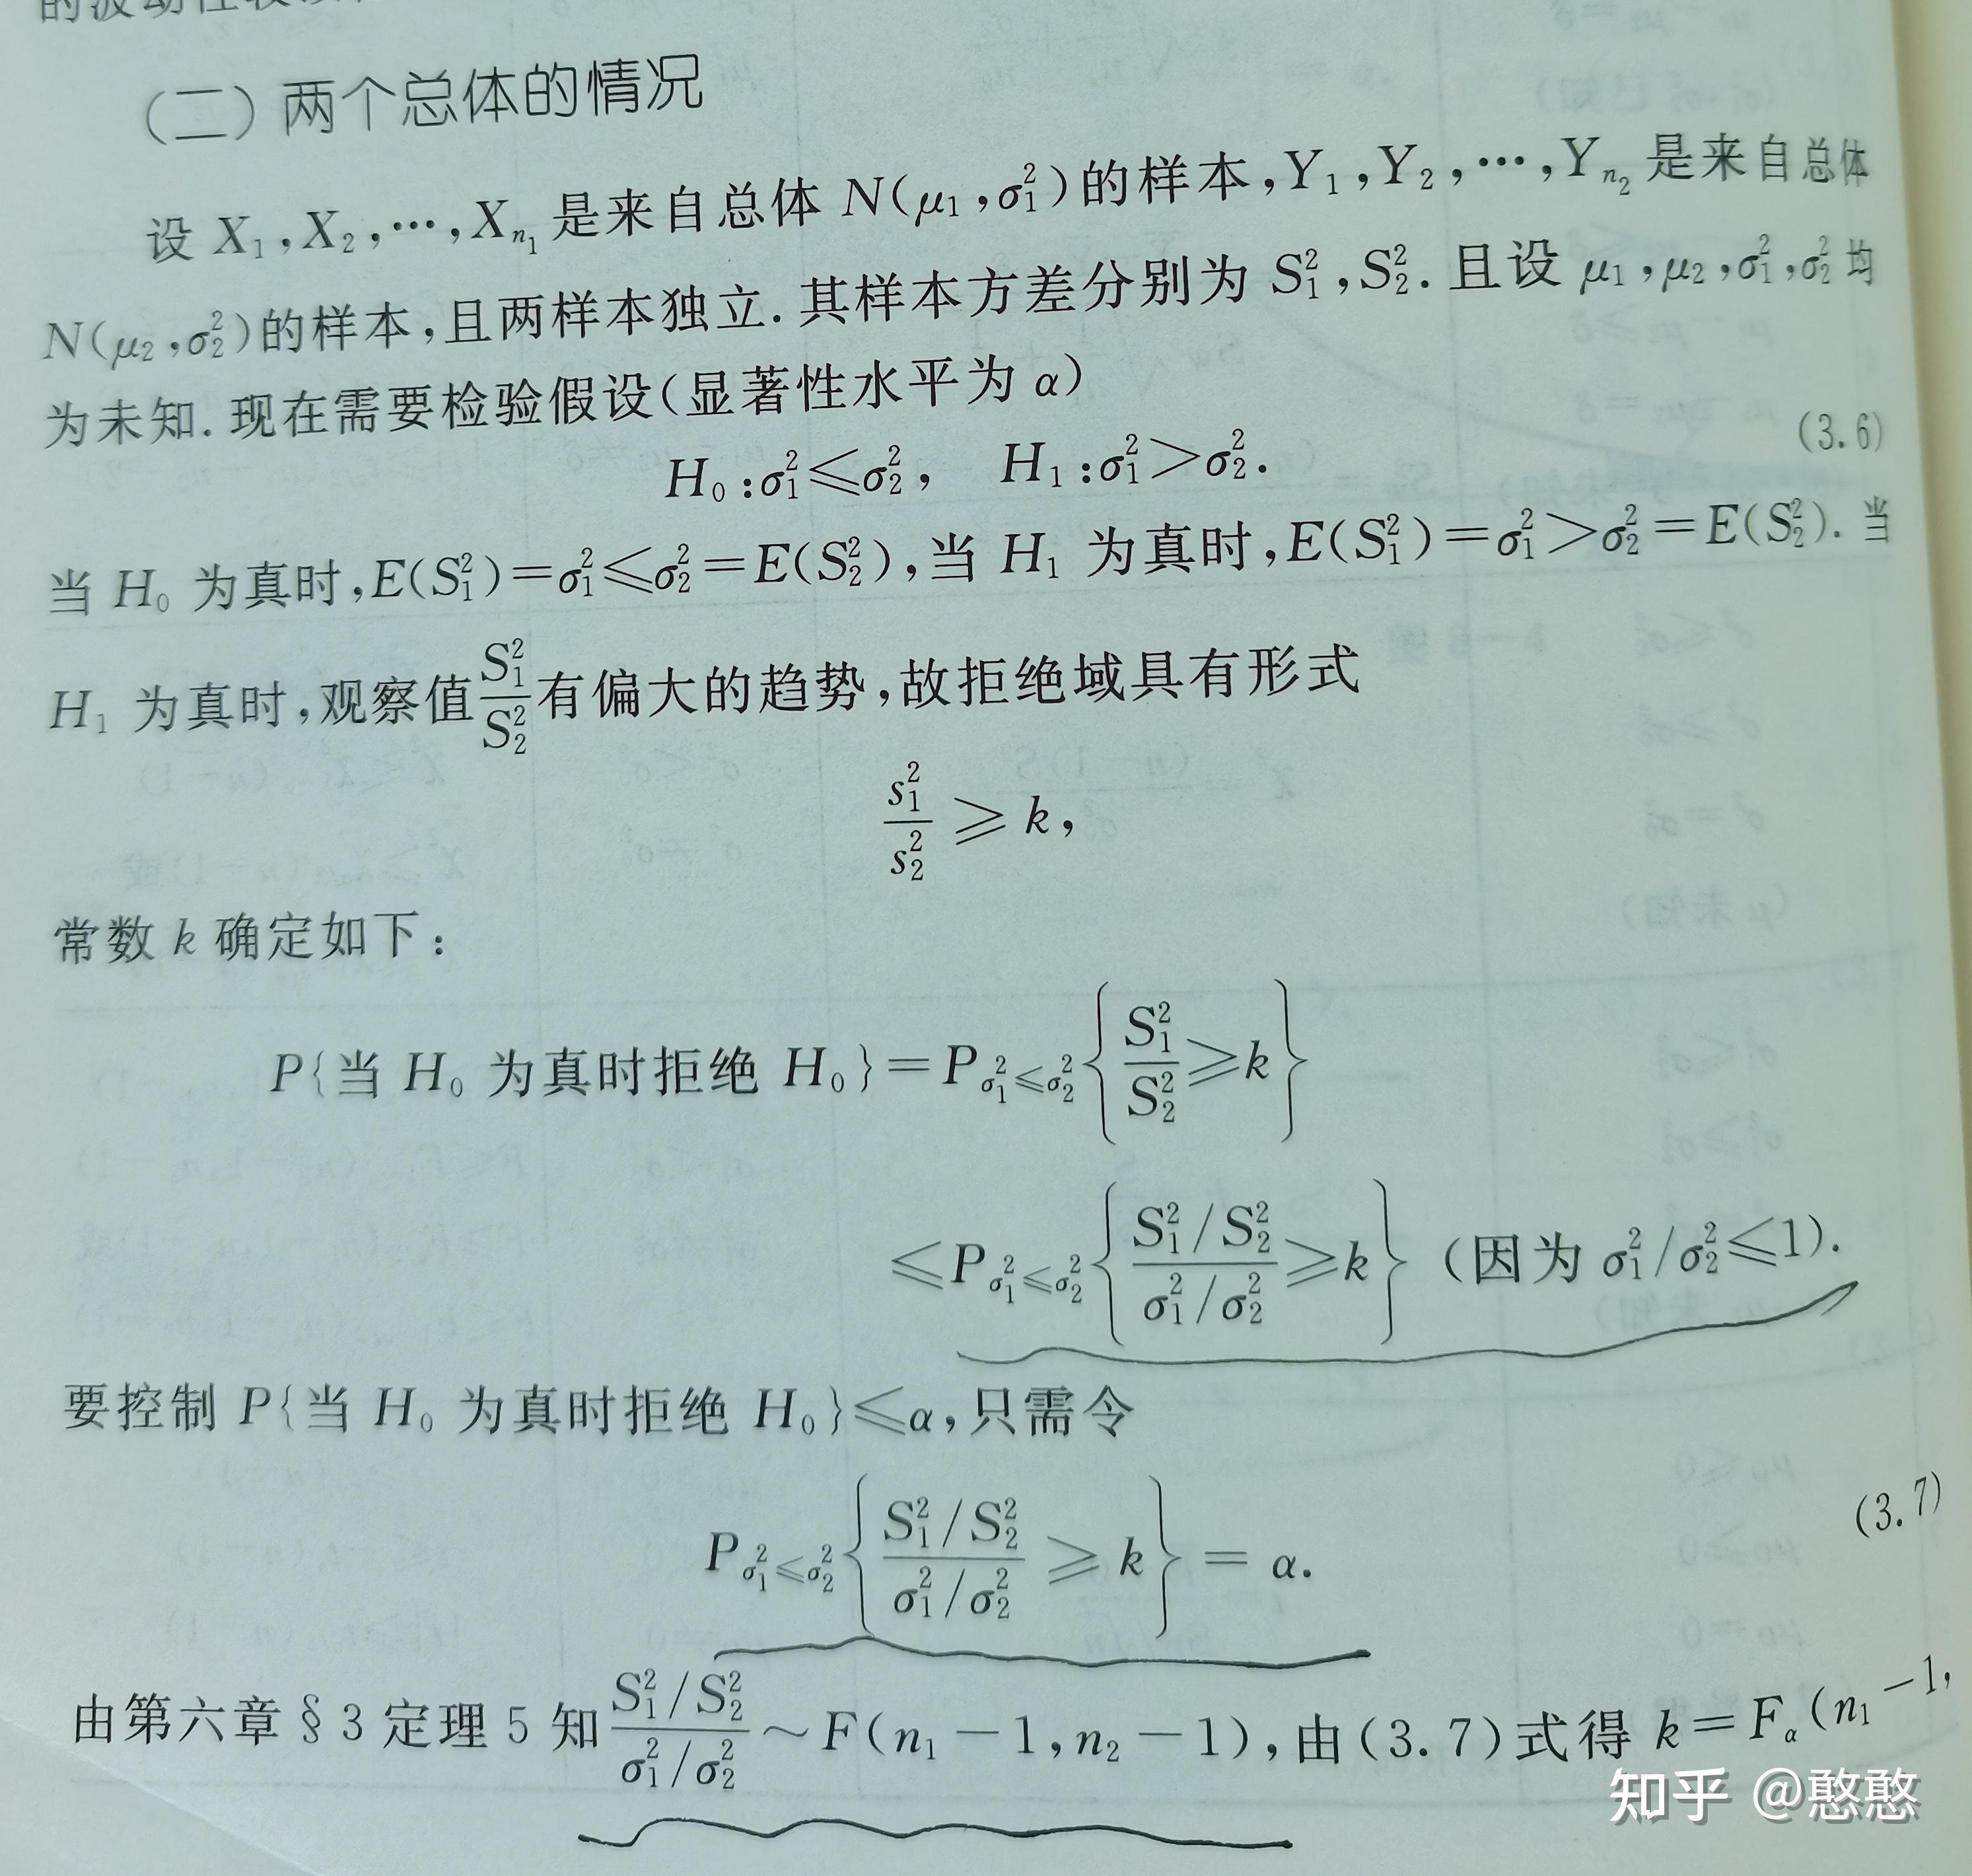 （二）两个总体的情况
设 X₁,X₂,…,Xₙ₁ 是来自总体 N(μ₁,σ₁²)的样本,Y₁,Y₂,…,Yₙ₂ 是来自总体
N(μ₂,σ₂²)的样本,且两样本独立.其样本方差分别为 S₁²,S₂².且设 μ₁,μ₂,σ₁²,σ₂² 均
为未知.现在需要检验假设(显著性水平为 α)
H₀:σ₁²≤σ₂², H₁:σ₁²>σ₂². (3.6)
当 H₀ 为真时,E(S₁²)=σ₁²≤σ₂²=E(S₂²),当 H₁ 为真时,E(S₁²)=σ₁²>σ₂²=E(S₂²).当
H₁ 为真时,观察值 S₁²/S₂² 有偏大的趋势,故拒绝域具有形式
s₁²/s₂² ≥ k,
常数 k 确定如下:
P{当 H₀ 为真时拒绝 H₀}=P_{σ₁²≤σ₂²}{S₁²/S₂² ≥k}
≤P_{σ₁²≤σ₂²}{(S₁²/S₂²)/(σ₁²/σ₂²) ≥k} (因为 σ₁²/σ₂²≤1).
要控制 P{当 H₀ 为真时拒绝 H₀}≤α,只需令
P_{σ₁²≤σ₂²}{(S₁²/S₂²)/(σ₁²/σ₂²) ≥ k} = α. (3.7)
由第六章§3定理5知 (S₁²/S₂²)/(σ₁²/σ₂²) ~F(n₁−1,n₂−1),由(3.7)式得 k=F_α(n₁−1,
知乎 @憨憨